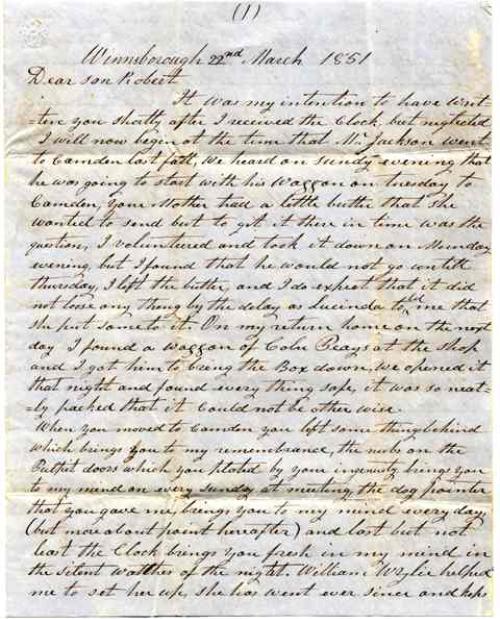 (1)
Winnsborough 22nd March 1851
Dear son Robert
It was my intention to have writ=
ten you shortly after I received the Clock, but neglected
I will now begin at the time that Mr Jackson went
to Camden last fall, we heard on sunday evening that
he was going to start with his Waggon on tuesday to
Camden, your Mother had a little butter that she
wanted to send but to git it there in time was the
question, I volunteered and took it down on Munday
evening, but I found that he would not go untill
thursday, I left the butter, and I do expect that it did
not loose any thing by the delay as Lucinda told me that
she put some to it. On my return home on the next
day I found a waggon of Coln Peays at the shop
and I got him to bring the Box down, we opened it
that night and found every thing safe, it was so neat=
ly packed that it could not be other wise.
When you moved to Camden you left some thing behind
which brings you to my remembrance, the nobs on the
Pulpit doors which you by your ingenuity brings you
to my mind on every sunday at meeting, the dog pointer
that you gave me, brings you to my mind every day,
(but more about point hereafter) and last but not
least the Clock brings you fresh in my mind in
the silent watches of the night. William Wylie helped
me to set her up, she has went ever since and keeps